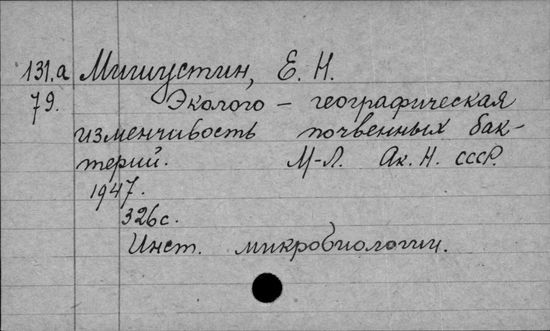 131.а Мишустин, Е. Н.
79. Эколого – географическая
изменчивость почвенных бак-
терий. М-Л. Ак. Н. СССР.
1947.
326 с.
Инст. микробиологии.